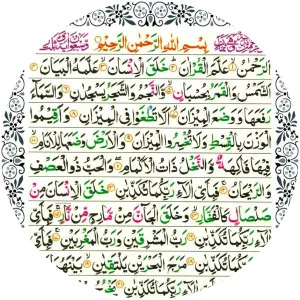 بِسْمِ اللهِ الرَّحْمٰنِ الرَّحِيْمِ
اَلرَّحْمٰنُ ۙ﴿۱﴾ عَلَّمَ الْقُرْاٰنَ ؕ﴿۲﴾ خَلَقَ الْاِنْسَانَ ۙ﴿۳﴾ عَلَّمَهُ الْبَيَانَ ﴿۴﴾
اَلشَّمْسُ وَالْقَمَرُ بِحُسْبَانٍ ﴿۵﴾ وَّالنَّجْمُ وَالشَّجَرُ يَسْجُدٰنِ ﴿۶﴾ وَالسَّمَآءَ
رَفَعَهَا وَوَضَعَ الْمِيْزَانَ ۙ﴿۷﴾ اَلَّا تَطْغَوْا فِى الْمِيْزَانِ ﴿۸﴾ وَاَقِيْمُوا
الْوَزْنَ بِالْقِسْطِ وَلَا تُخْسِرُوا الْمِيْزَانَ ﴿۹﴾ وَالْاَرْضَ وَضَعَهَا لِلْاَنَامِ ۙ﴿۱۰﴾
فِيْهَا فَاكِهَةٌ وَّالنَّخْلُ ذَاتُ الْاَكْمَامِ ﴿۱۱﴾ وَالْحَبُّ ذُو الْعَصْفِ
وَالرَّيْحَانُ ﴿۱۲﴾ فَبِاَىِّ اٰلَآءِ رَبِّكُمَا تُكَذِّبٰنِ ﴿۱۳﴾ خَلَقَ الْاِنْسَانَ مِنْ
صَلْصَالٍ كَالْفَخَّارِ ۙ﴿۱۴﴾ وَخَلَقَ الْجَآنَّ مِنْ مَّارِجٍ مِّنْ نَّارٍ ﴿۱۵﴾ فَبِاَىِّ
اٰلَآءِ رَبِّكُمَا تُكَذِّبٰنِ ﴿۱۶﴾ رَبُّ الْمَشْرِقَيْنِ وَرَبُّ الْمَغْرِبَيْنِ ﴿۱۷﴾ فَبِاَىِّ
اٰلَآءِ رَبِّكُمَا تُكَذِّبٰنِ ﴿۱۸﴾ مَرَجَ الْبَحْرَيْنِ يَلْتَقِيٰنِ ﴿۱۹﴾ بَيْنَهُمَا
رَبِّكُمَا تُكَذِّبٰنِ ﴿۲۱﴾